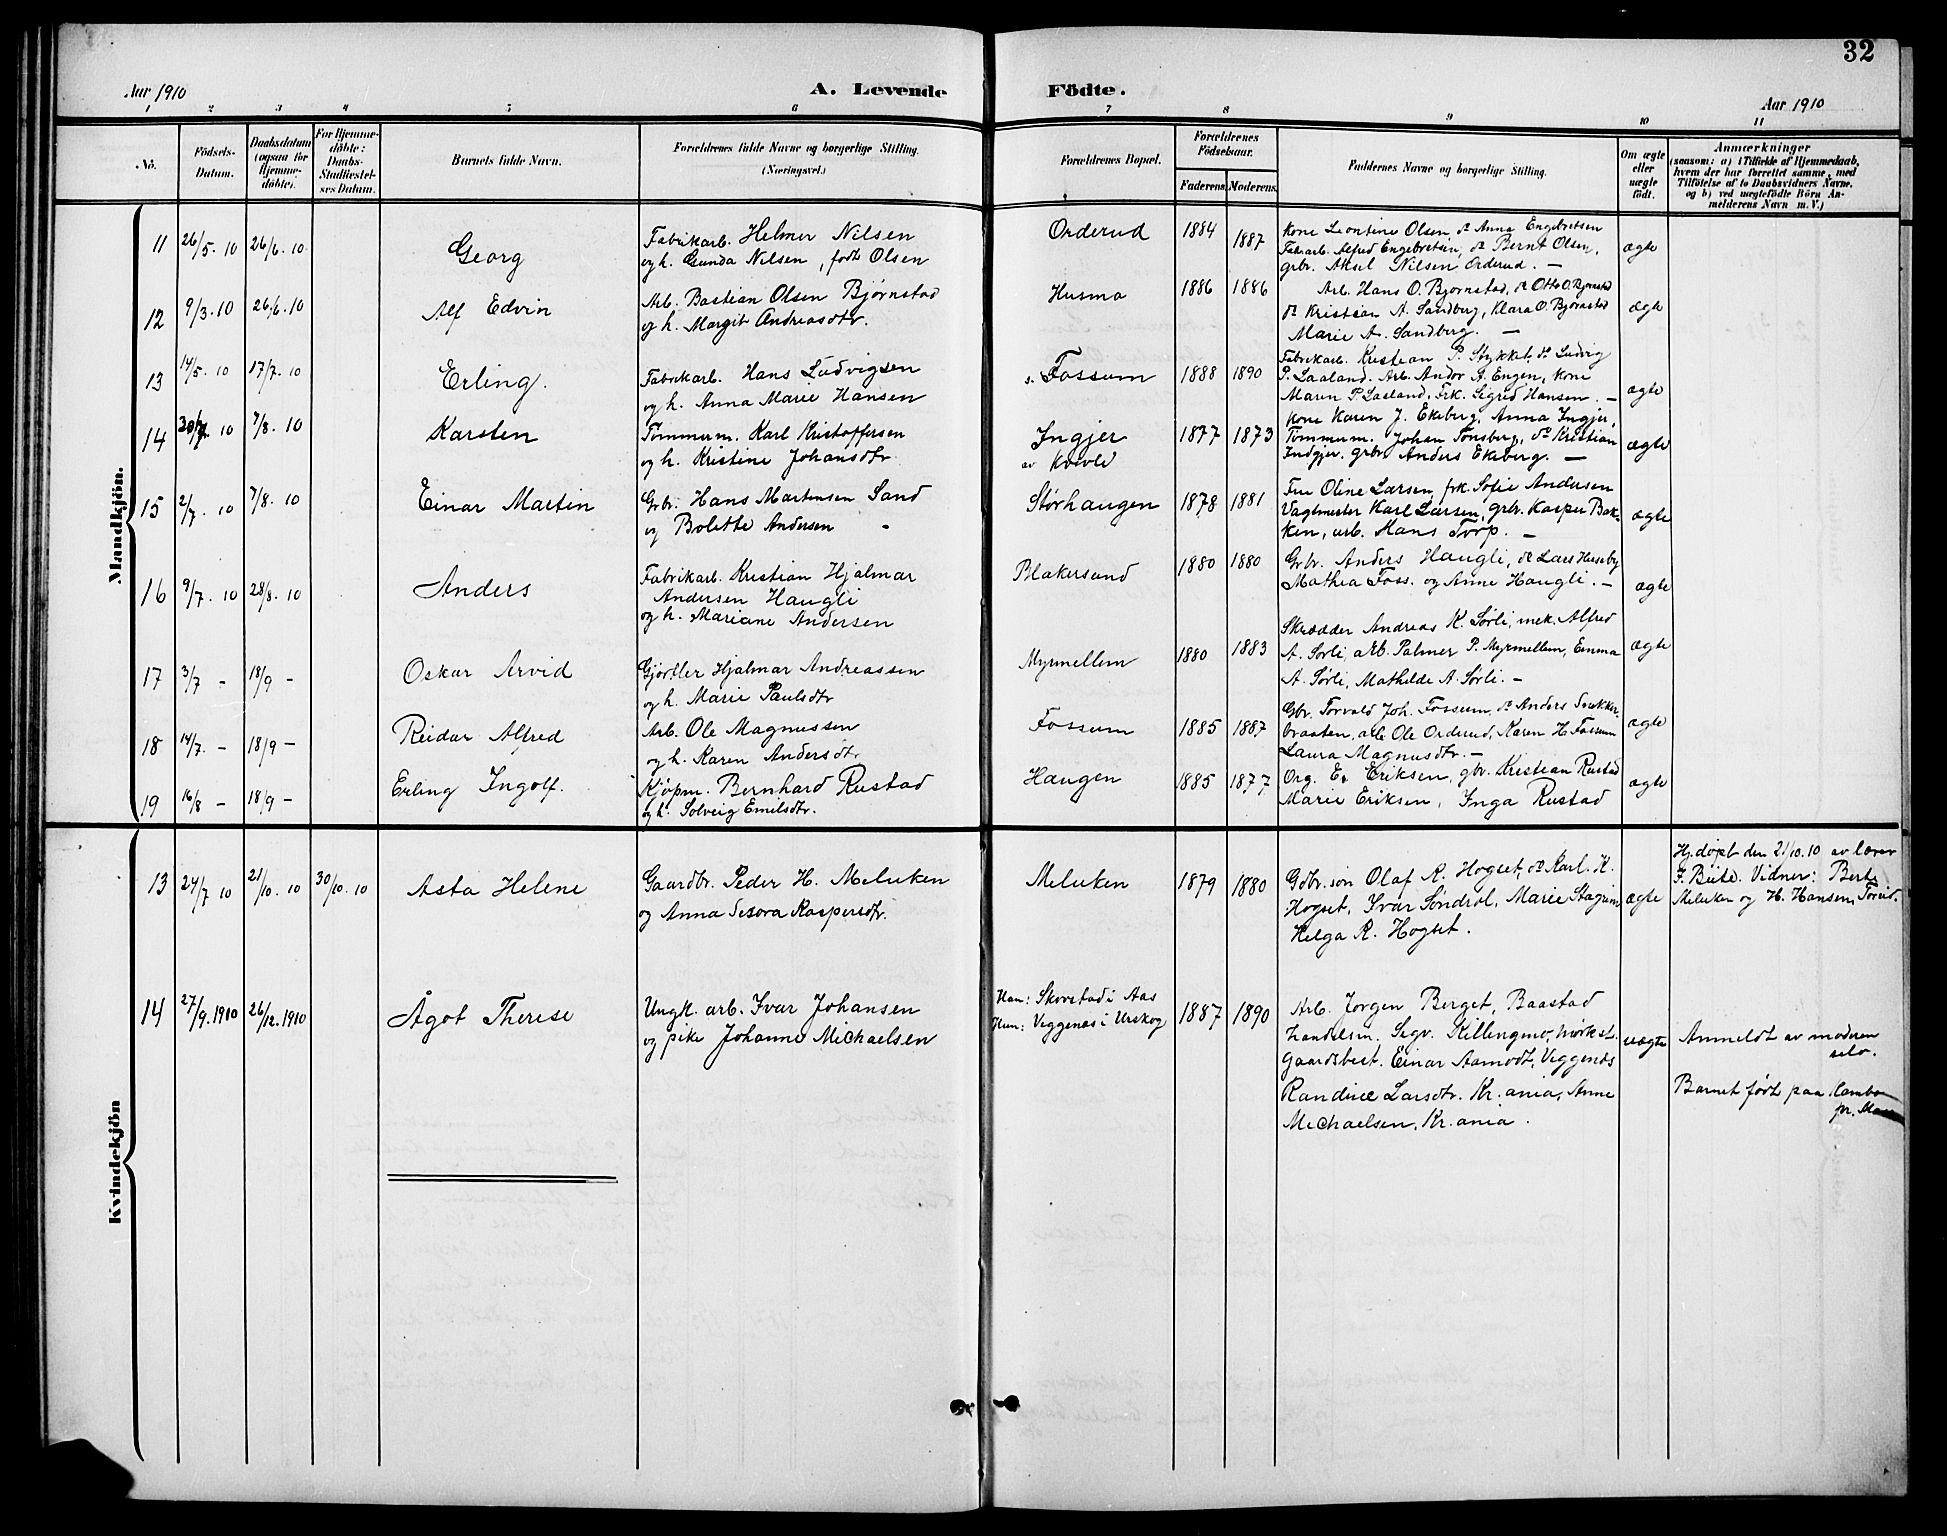 32
Aar 1910
A. Levende Födte.
Aar 1910
1 2 3 4 5 6 7 8 9 10 11
No. Födsels-Datum. Daabsdatum (ogsaa for Hjemmedöbte). For Hjemmedöbte: Daabs-Stadfæstelses Datum. Barnets fulde Navn. Forældrenes fulde Navne og borgerlige Stilling. (Næringsvei.) Forældrenes Bopæl. Forældrenes Födselsaar. Faderens. Moderens. Faddernes Navne og borgerlige Stilling. Om ægte eller uægte födt. Anmærkninger
(saasom: a) i Tilfælde af Hjemmedaab, hvem der har forrettet samme, med Tilföielse af to Daabsvidners Navne, og b) ved uægtefödte Börn Anmelderens Navn m. V.)
Mandkjön.
11 26/5. 10 26/6. 10 Georg
Fabrikarb. Helmer Nilsen
og h. Gunda Nilsen, født Olsen
Orderud 1884 1887
Kone Leontine Olsen, do Anna Engebretsen
Fabrarb. Alfred Engebretsen, do Bernt Olsen,
grbr. Aksel Nilsen Orderud. —
ægte
12 9/3. 10 26/6. 10 Alf Edvin
Arb. Bastian Olsen Bjørnstad
og h. Margit Andreasdtr.
Husmo 1886 1886
Arb. Hans O. Bjørnstad, do Otto O. Bjørnstad
do Kristian A. Sandberg, Klara O. Bjørnstad
Marie A. Sandberg. —
ægte
13 14/5. 10 17/7. 10 Erling.
Fabrikarb. Hans Ludvigsen
og h. Anna Marie Hansen
s. Fossum 1888 1890
Fabrikarb. Kristian P. Stykket, do Ludvig
P. Laaland. Arb. Andor A. Engen, kone
Maren P. Laaland, Frk. Sigrid Hansen. —
ægte
14 30/7 10 7/8. 10 Karsten
Tømmerm. Karl Kristoffersen
og h. Kristine Johansdtr
Ingjer
av Kvevld
1877 1873
Kone Karen J. Ekeberg, Anna Ingjer,
Tømmerm. Johan Tønsberg, do Kristian
Indgjer. grbr. Anders Ekeberg. —
ægte
15 2/7. 10 7/8. 10 Einar Martin
Grbr. Hans Martinsen Sand
og Bolette Andersen -
Størhaugen 1878 1881
Fru Oline Larsen, frk. Sofie Andersen
Vagtmester Karl Larsen, grbr. Kasper Bak-
ken, arb. Hans Torp. —
ægte
16 9/7. 10 28/8. 10 Anders
Fabrikarb. Kristian Hjalmar
Andersen Haugli
og h. Mariane Andersen
Blakersund 1880 1880
Grbr. Anders Haugli, do Lars Huseby
Mathea Foss. og Anne Haugli. —
ægte
17 3/7 - 18/9 - Oskar Arvid
Gjørtler Hjalmar Andreassen
og h. Marie Paulsdtr
Myrmellem 1880 1883
Skrædder Andreas K. Sørli, mek. Alfred
A. Sørli, arb. Palmer P. Myrmellem, Emma
A. Sørli, Mathilde A. Sørli. —
ægte
18 14/7. - 18/9 - Reidar Alfred
Arb. Ole Magnussen
og h. Karen Andersdtr
Fossum 1885 1887
Gbr. Torvald Joh. Fossum, do Anders Snekker-
braaten, arb. Ole Orderud, Karen H. Fossum
Laura Magnusdtr. —
ægte
19 16/8 - 18/9 - Erling Ingolf.
Kjøpm. Bernhard Rustad
og h. Solveig Emilsdtr.
Haugen 1885 1877
Org. E. Eriksen, gbr. Kristian Rustad
Marie Eriksen, Inga Rustad
ægte
Kvindekjön
13 24/7 10 21/10. 10 30/10. 10 Asta Helene
Gaardbr. Peder H. Meluken
og Anna Kaspersdtr.
Meluken 1879 1880
Gdbr.søn Olaf R. Hogset, do Karl. K.
Hogset, Ivar Søndrol, Marie
Helga R. Hogset.
ægte
Hj.døpt den 21/10.10 av lærer
Vidner: Berte
Melukен og H. Hansen,
14 27/9.1910 26/12.1910 Ågot Therese
Ungk. arb. Ivar Johansen
og pike Johanne Michaelsen
Han: Skovstad i Aas
Hun: Veggenæs i Urskog
1887 1890
Arb. Jørgen Berget, Baastad
handelsm. Sigv. Killingmo, Mørkst.
gaardsbest. Einar Aamodt, Veggenæs
Randine Larsdtr. Kr.ania, Anne
Michaelsen, Kr.ania.
uægte
Anmeldt av moderen
selv.
Barnet født paa Kambo
pr. Moss